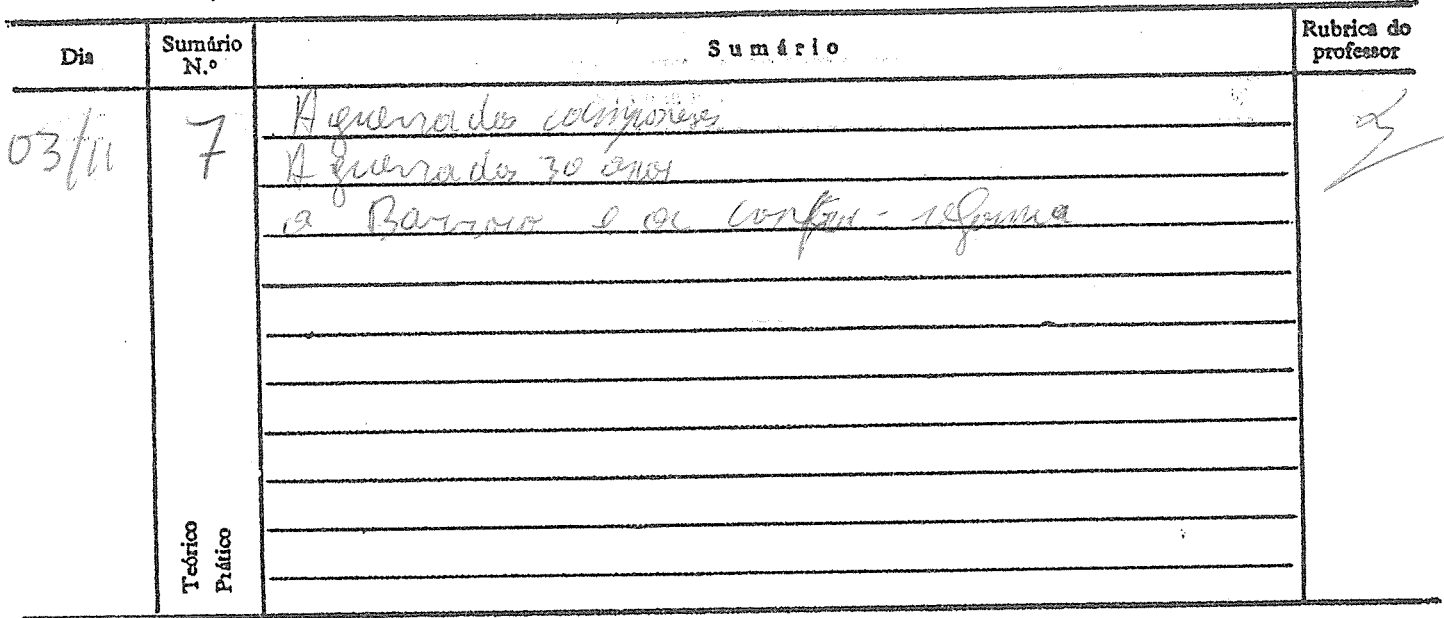 Dia Sumário N.º Sumário Rubrica do professor
03/11 7 A guerra dos camponeses
A guerra dos 30 anos
o Barroco e a contra-reforma
Teórico
Prático